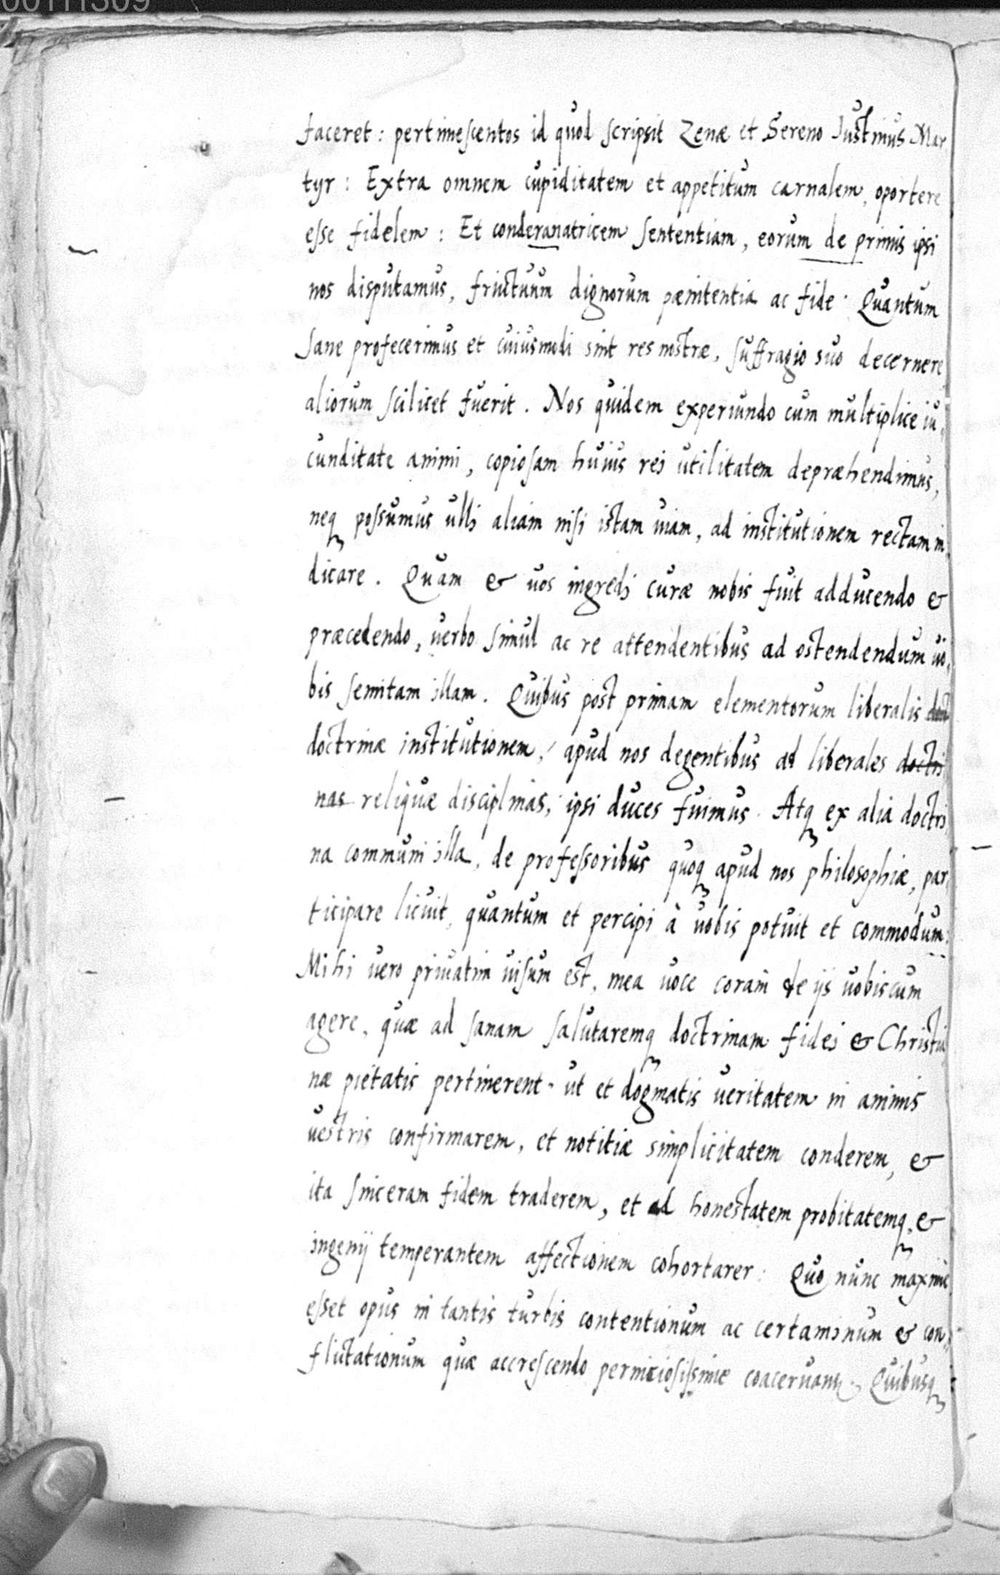 00111309
faceret: pertimescentes id quod scripsit Zenæ et Sereno Iustinus Mar
tyr: Extra omnem cupiditatem et appetitum carnalem, oportere
esse fidelem: Et condemnatricem sententiam, eorum de primis ipsi
nos disputamus, fructuum dignorum pænitentia ac fide. Quantum
sane profecerimus et cuiusmodi sint res nostræ, suffragio suo decernere
aliorum scilicet fuerit. Nos quidem experiundo cum multiplice iu,
cunditate animi, copiosam huius rei utilitatem depræhendimus,
neq possumus ulli aliam nisi istam uiam, ad institutionem rectam in
dicare. Quam & uos ingredi curæ nobis fuit adducendo &
præcedendo, uerbo simul ac re attendentibus ad ostendendum uo,
bis semitam illam. Quibus post primam elementorum liberalis
doctrinæ institutionem, apud nos degentibus ad liberales doctri
nas reliquæ disciplinas, ipsi duces fuimus. Atq ex alia doctri,
na communi illa, de professoribus quoq apud nos philosophiæ, par
ticipare licuit, quantum et percipi à uobis potuit et commodum.
Mihi uero priuatim uisum est, mea uoce coram de ijs uobiscum
agere, quæ ad sanam salutaremq doctrinam fidei & Christia
næ pietatis pertinerent. ut et dogmatis ueritatem in animis
uestris confirmarem, et notitiæ simplicitatem conderem, &
ita sinceram fidem traderem, et ad honestatem probitatemq, &
ingenij temperantem affectionem cohortarer: Quo nunc maxime
esset opus in tantis turbis contentionum ac certaminum & con,
flictationum quæ accrescendo perniciosissime coaceruant. Quibusq